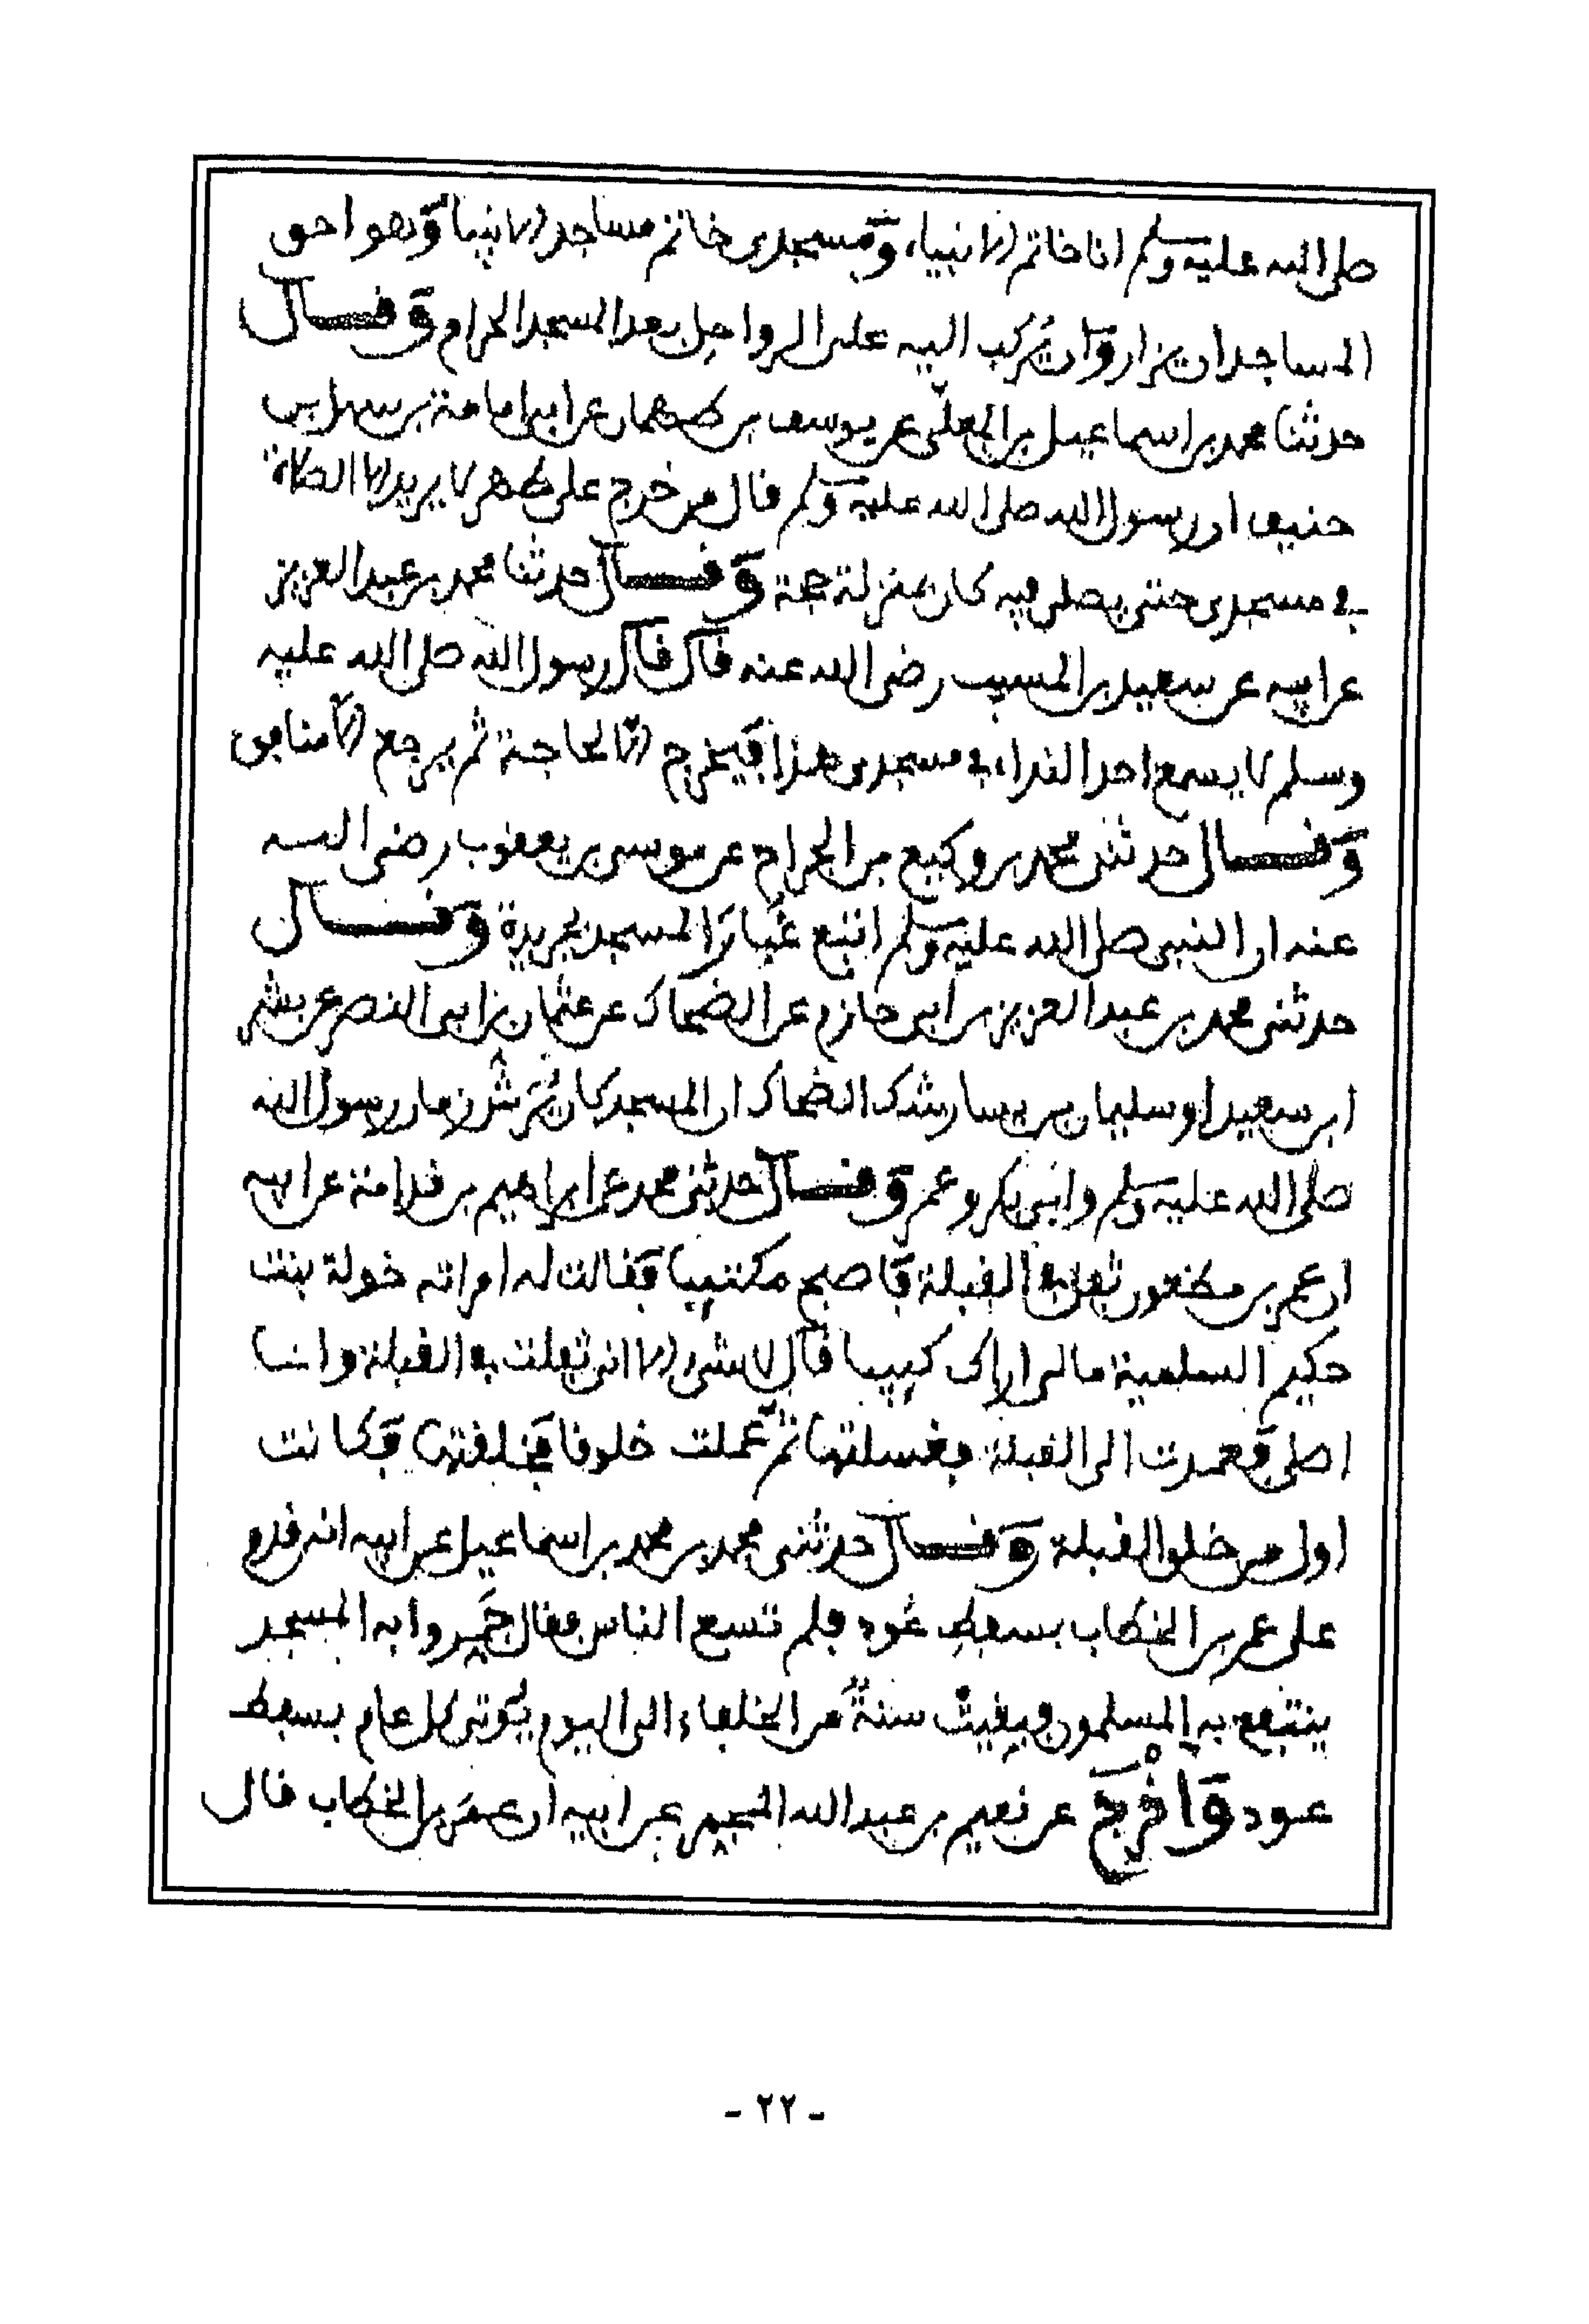 صلى الله عليه وسلم انا خاتم الانبياء ومسجدي خاتم مساجد الانبيا وهو احق
المساجد ان يزار وان يركب اليه على الرواحل بعد المسجد الحرام وقال
حدثنا محمد بن اسماعيل بن المعلى عن يوسف بن طهمان عن ابي امامة بن سهل بن
حنيف ان رسول الله صلى الله عليه وسلم قال من خرج على طهر لا يريد الا الصلاة
في مسجدي حتى يصلي فيه كان بمنزلة حجة وقال حدثنا محمد بن عبد العزيز
عن ابيه عن سعيد بن المسيب رضي الله عنه قال قال رسول الله صلى الله عليه
وسلم لا يسمع احد النداء في مسجدي هذا فيخرج الا لحاجة ثم يرجع الا منافق
وقال حدثني محمد بن وكيع بن الجراح عن موسى بن يعقوب رضي الله
عنه ان النبي صلى الله عليه وسلم اتبع غبار المسجد بجريدة وقال
حدثني محمد بن عبد العزيز بن ابي حازم عن الضحاك عن عثمان بن ابي النصر عن بشر
ابن سعيد او سليمان بن يسار شك الضحاك ان المسجد كان يرش زمان رسول الله
صلى الله عليه وسلم وابي بكر وعمر وقال حدثني محمد عن ابراهيم بن قدامة عن ابيه
ان عمر بن مظعون تفل في القبلة فاصبح مكتئبا فقالت له امراته خولة بنت
حكيم السلمية ما لي اراك كئيبا قال لا شي الا اني تفلت في القبلة وانا
اصلي فعمدت الى القبلة فغسلتها ثم عملت خلوقا فخلقتها فكانت
اول من خلق القبلة وقال حدثني محمد بن محمد بن اسماعيل عن ابيه انه قدم
على عمر بن الخطاب بسفط عود فلم تسع الناس فقال جمروا به المسجد
ينتفع به المسلمون وبقيت سنة من الخلفاء الى اليوم يوتى كل عام بسفط
عود واخرج عن نعيم بن عبد الله المجمر عن ابيه ان عمر بن الخطاب قال
- ٢٢ -